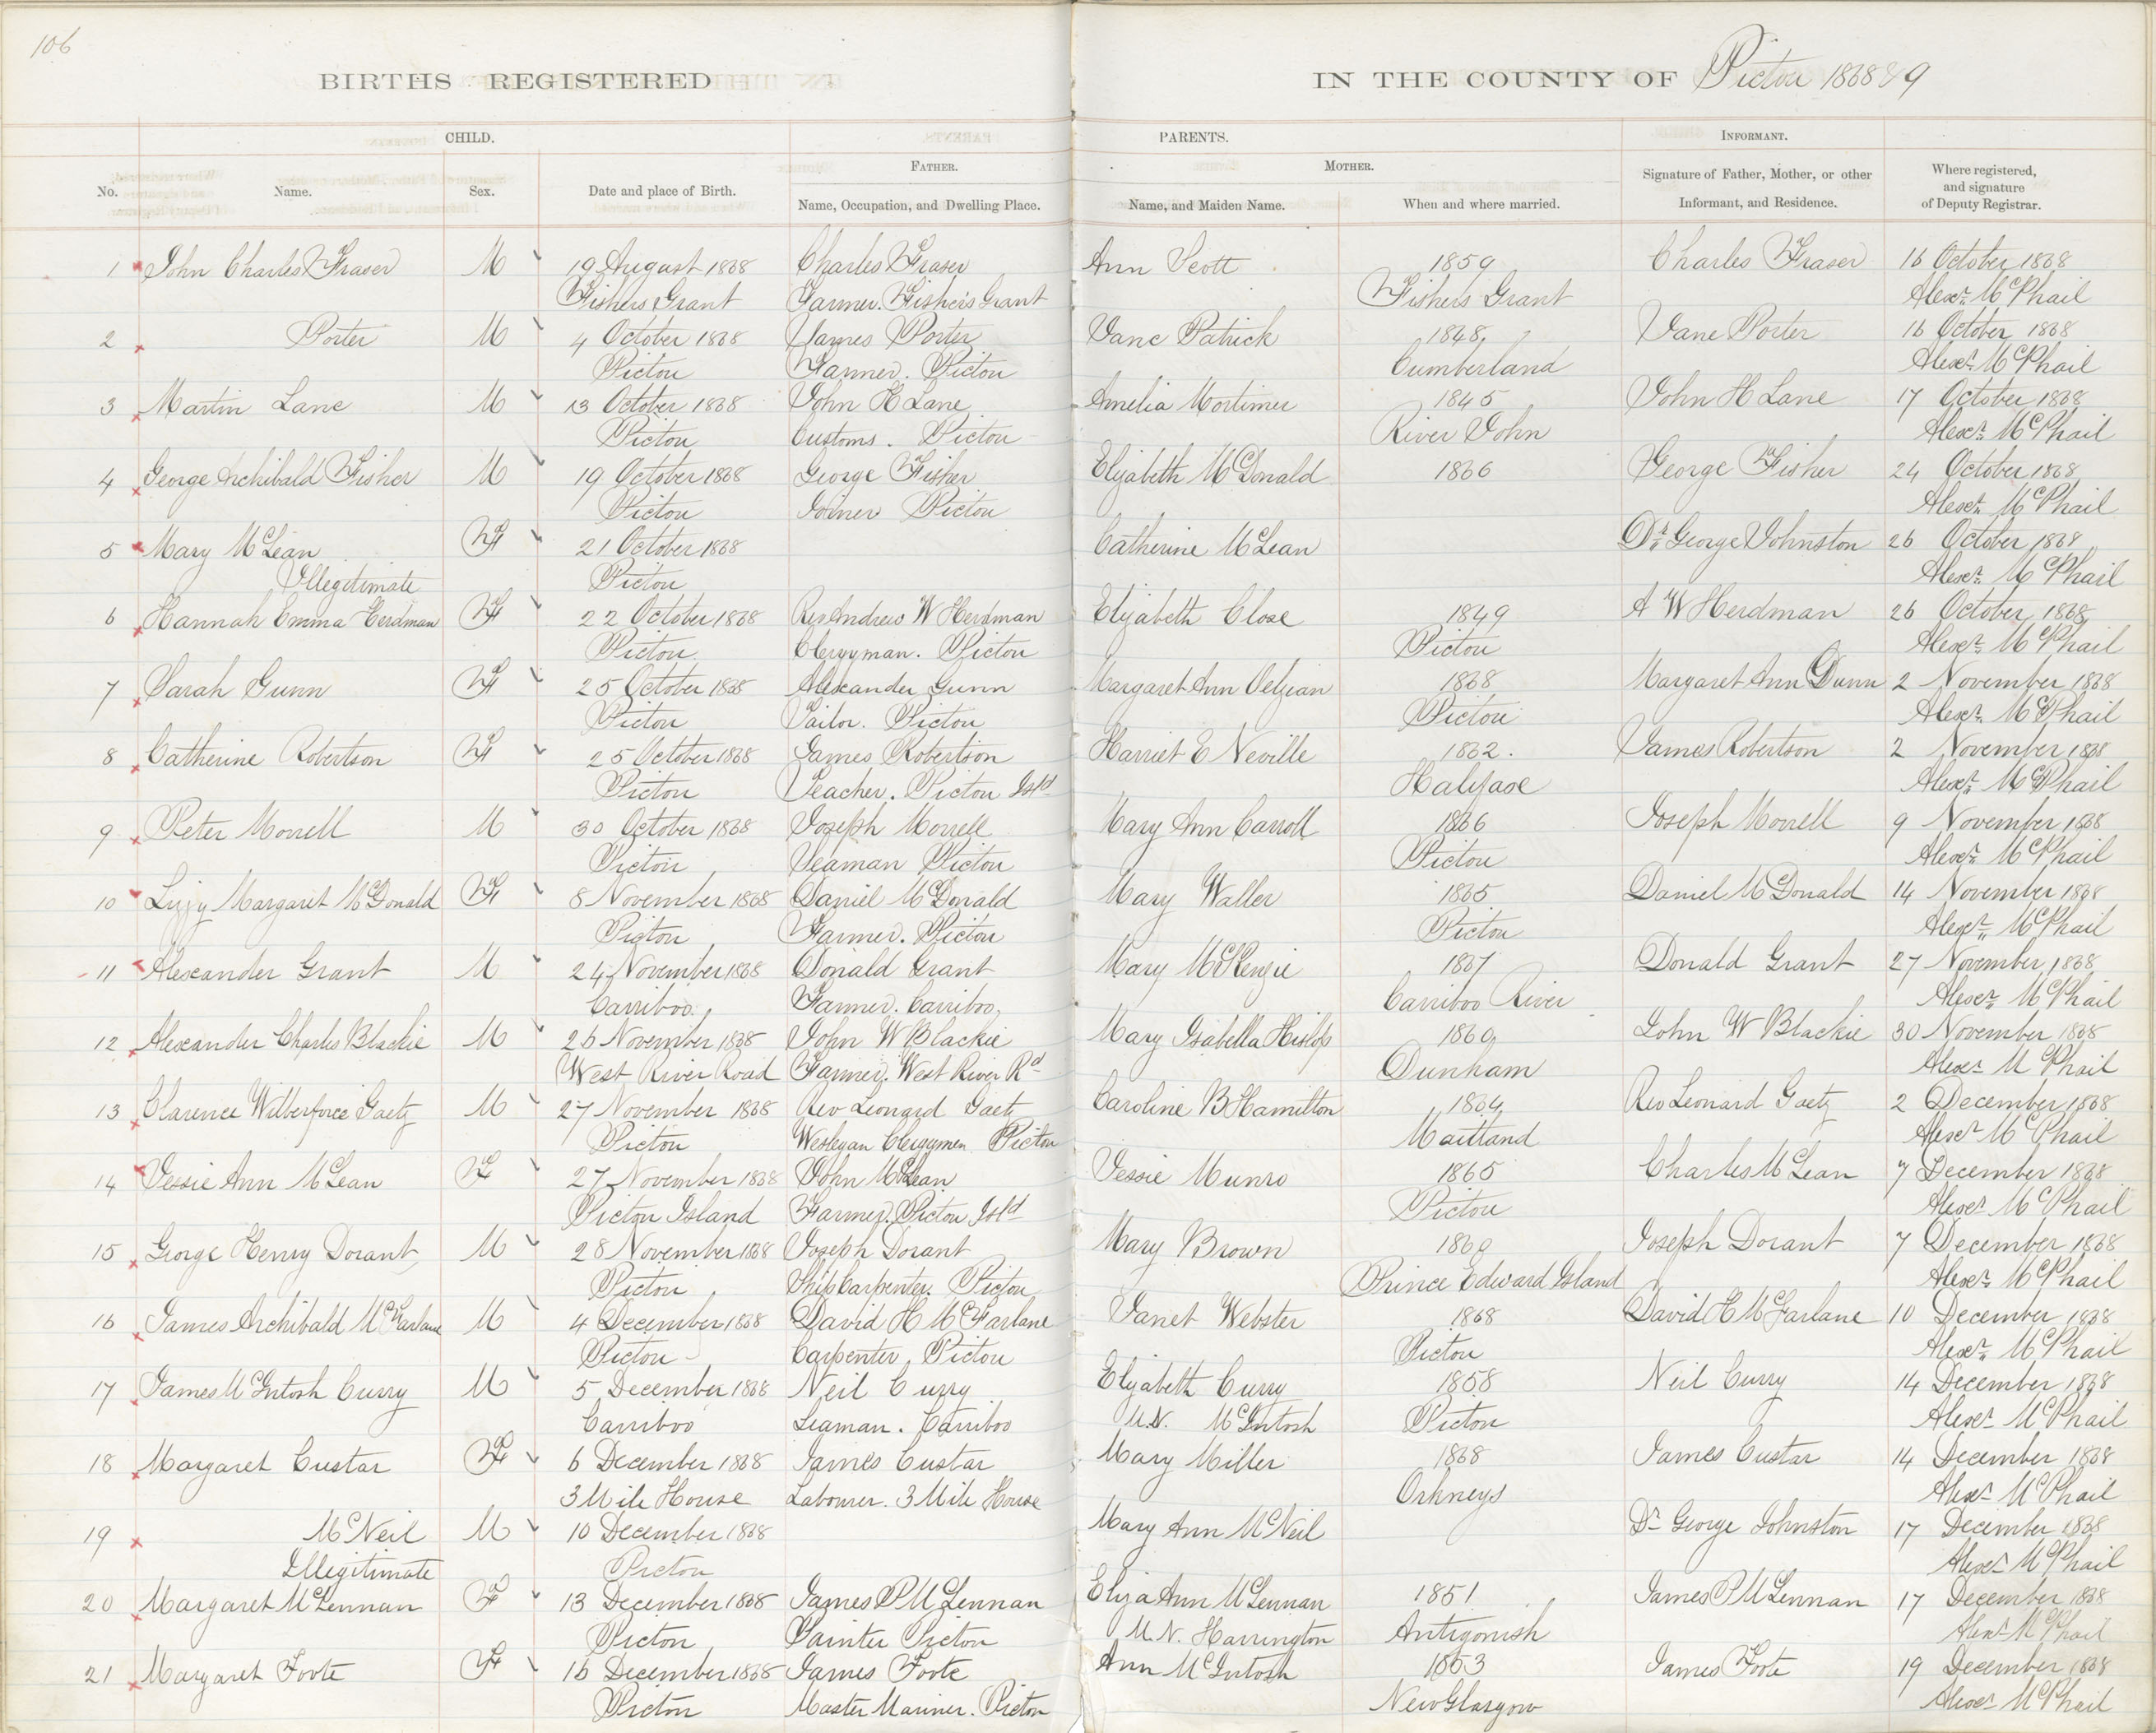 106
BIRTHS REGISTERED IN THE COUNTY OF Pictou 1868 & 9
CHILD. PARENTS. INFORMANT.
FATHER. MOTHER.
No. Name. Sex. Date and place of Birth. Name, Occupation, and Dwelling Place. Name, and Maiden Name. When and where married. Signature of Father, Mother, or other Informant, and Residence. Where registered, and signature of Deputy Registrar.
1 John Charles Fraser M 19 August 1868 Charles Fraser Ann Scott 1859 Charles Fraser 16 October 1868
Fishers Grant Farmer. Fishers Grant Fishers Grant Alexr. McPhail
2 Porter M 4 October 1868 James Porter Jane Patrick 1848 Jane Porter 16 October 1868
Pictou Farmer. Pictou Cumberland Alexr. McPhail
3 Martin Lane M 13 October 1868 John H Lane Amelia Mortimer 1845 John H Lane 17 October 1868
Pictou Customs. Pictou River John Alexr. McPhail
4 George Archibald Fisher M 19 October 1868 George Fisher Elizabeth McDonald 1866 George Fisher 24 October 1868
Pictou Joiner Pictou Alexr. McPhail
5 Mary McLean F 21 October 1868 Catherine McLean Dr. George Johnston 26 October 1868
Illegitimate Pictou Alexr. McPhail
6 Hannah Emma Herdman F 22 October 1868 Rev Andrew W Herdman Elizabeth Close 1849 A W Herdman 26 October 1868
Pictou Clergyman. Pictou Pictou Alexr. McPhail
7 Sarah Gunn F 25 October 1868 Alexander Gunn Margaret Ann 1868 Margaret Ann Dunn 2 November 1868
Pictou Tailor. Pictou Pictou Alexr. McPhail
8 Catherine Robertson F 25 October 1868 James Robertson Harriet E Neville 1862. James Robertson 2 November 1868
Pictou Teacher. Pictou Isld Halifax Alexr. McPhail
9 Peter Morrell M 30 October 1868 Joseph Morrell Mary Ann Carroll 1866 Joseph Morrell 9 November 1868
Pictou Seaman Pictou Pictou Alexr. McPhail
10 Lizzy Margaret McDonald F 8 November 1868 Daniel McDonald Mary Waller 1865 Daniel McDonald 14 November 1868
Pictou Farmer. Pictou Pictou Alexr. McPhail
11 Alexander Grant M 24 November 1868 Donald Grant Mary McKenzie 1867 Donald Grant 27 November 1868
Carriboo Farmer. Carriboo Carriboo River Alexr. McPhail
12 Alexander Charles Blackie M 26 November 1868 John W Blackie Mary Isabella Hislop 1860 John W Blackie 30 November 1868
West River Road Farmer. West River Rd Dunham Alexr McPhail
13 Clarence Wilberforce Gaetz M 27 November 1868 Rev Leonard Gaetz Caroline B Hamilton 1864 Rev Leonard Gaetz 2 December 1868
Pictou Wesleyan Clergymen Pictou Maitland Alexr McPhail
14 Jessie Ann McLean F 27 November 1868 John McLean Jessie Munro 1865 Charles McLean 7 December 1868
Pictou Island Farmer. Pictou Isld Pictou Alexr McPhail
15 George Henry Dorant M 28 November 1868 Joseph Dorant Mary Brown 1860 Joseph Dorant 7 December 1868
Pictou Ship Carpenter. Pictou Prince Edward Island Alexr. McPhail
16 James Archibald McFarlane M 4 December 1868 David H McFarlane Janet Webster 1868 David H McFarlane 10 December 1868
Pictou Carpenter, Pictou Pictou Alexr. McPhail
17 James McIntosh Curry M 5 December 1868 Neil Curry Elizabeth Curry 1858 Neil Curry 14 December 1868
Carriboo Seaman. Carriboo M.N. McIntosh Pictou Alexr McPhail
18 Margaret Custar F 6 December 1868 James Custar Mary Miller 1868 James Custar 14 December 1868
3 Mile House Labourer. 3 Mile House Orkneys Alexr McPhail
19 McNeil M 10 December 1868 Mary Ann McNeil Dr George Johnston 17 December 1868
Illegitimate Pictou Alexr McPhail
20 Margaret McLennan F 13 December 1868 James P McLennan Eliza Ann McLennan 1851 James P McLennan 17 December 1868
Pictou Painter Pictou M.N. Harrington Antigonish Alexr McPhail
21 Margaret Foote F 16 December 1868 James Foote Ann McIntosh 1853 James Foote 19 December 1868
Pictou Master Mariner. Pictou New Glasgow Alexr McPhail